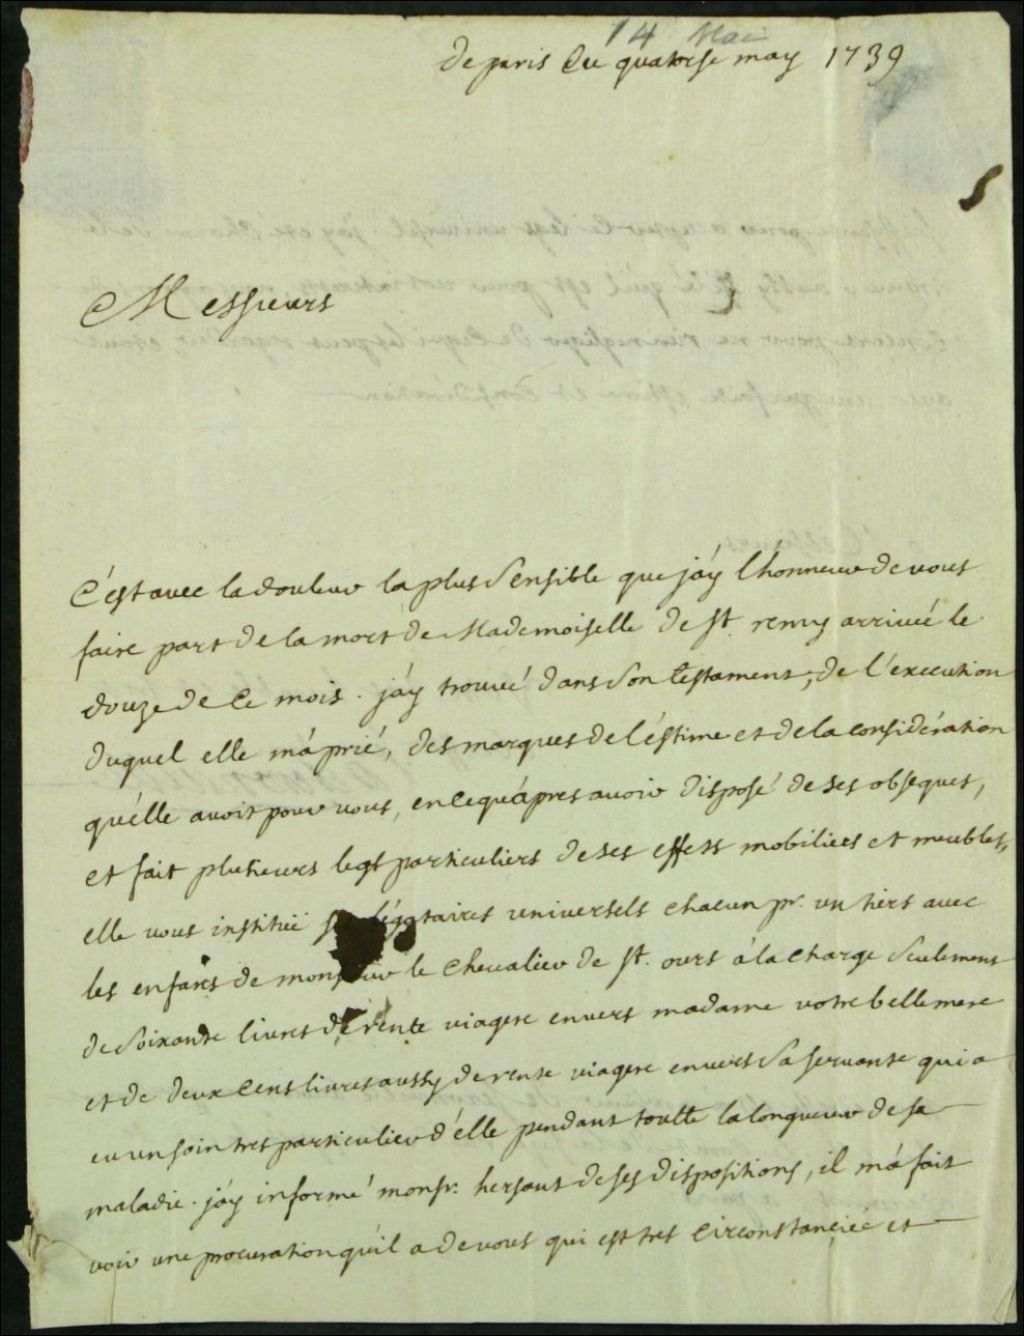 14 Mai
de paris Ce quatorse may 1739
Messieurs
C'est avec la douleur la plus sensible que j'ay l'honneur de vous
faire part de la mort de Mademoiselle de st remy arrivée le
douze de Ce mois. j'ay trouvé dans son testament, de l'execution
duquel elle m'a prié, des marques de l'éstime et de la considération
qu'elle avoit pour vous, en ce qu'apres avoir disposé de ses obseques,
et fait plusieurs legs particuliers de ses effets mobiliers et meubles,
elle vous institüe légataires universels chacun pr. un tiers avec
les enfans de monsieur le chevalier de st. ours à la charge seulement
de soixante livres de rente viagere envers madame votre belle mere
et de deux Cens livres aussy de rente viagere envers sa servante qui a
eu un soin tres particulier d'elle pendant toutte la longueur de sa
maladie. j'ay informé monsr. hersant de ses dispositions, il m'a fait
voir une procuration qu'il a de vous qui est tres Circonstanciée et